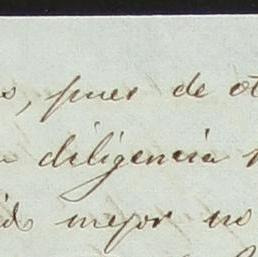 s, pues de ot
diligencia
id mejor no